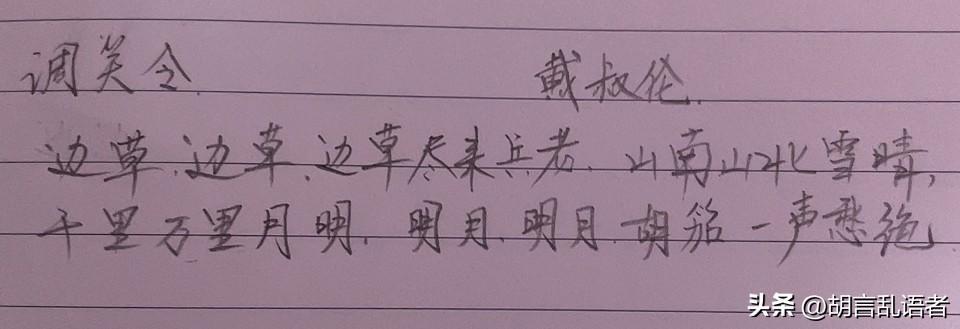 调笑令 戴叔伦
边草.边草.边草尽来兵老.山南山北雪晴,
千里万里月明.明月.明月.胡笳一声愁绝
头条 @胡言乱语者